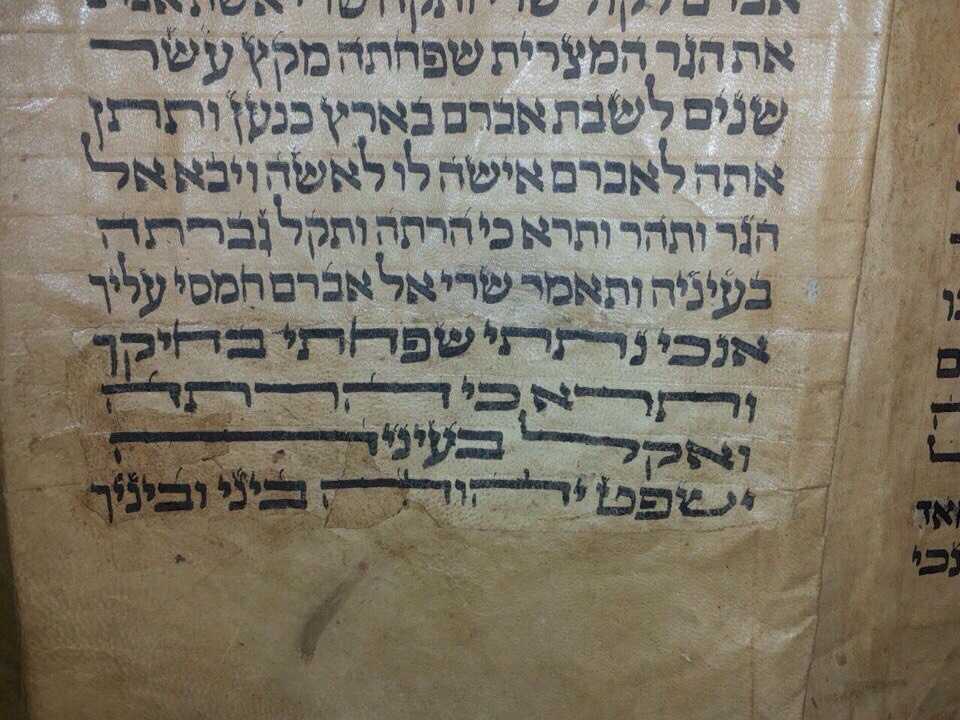 אברם לקול שרי ותקח שרי אשת אברם
את הגר המצרית שפחתה מקץ עשר
שנים לשבת אברם בארץ כנען ותתן
אתה לאברם אישה לו לאשה ויבא אל
הגר ותהר ותרא כי הרתה ותקל גברתה
בעיניה ותאמר שרי אל אברם חמסי עליך
אנכי נתתי שפחתי בחיקך
ותרא כי הרתה
ואקל בעיניה
ישפט יהוה ביני וביניך